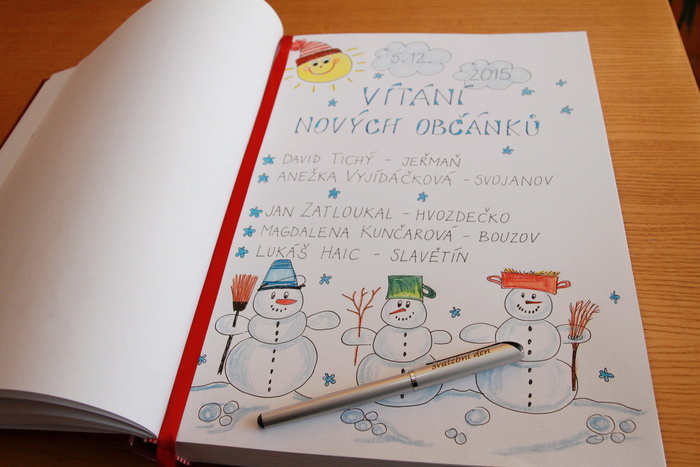 5.12.
2015
VÍTÁNÍ
NOVÝCH OBČÁNKŮ
DAVID TICHÝ - JEŘMAŇ
ANEŽKA VYJÍDÁČKOVÁ - SVOJANOV
JAN ZATLOUKAL - HVOZDEČKO
MAGDALENA KUNČAROVÁ - BOUZOV
LUKÁŠ HAIC - SLAVĚTÍN
Svatební den